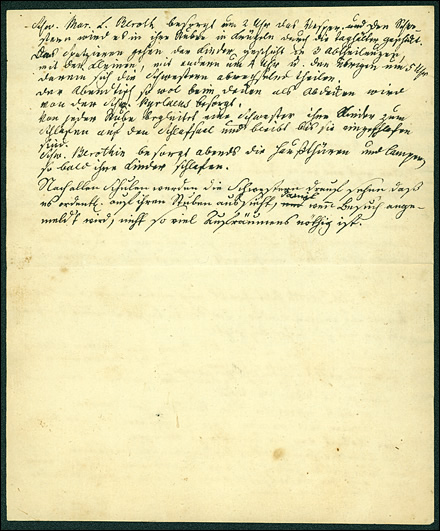 Schw. Mar. L. Kroth besorgt um 2 Uhr das Vesper, und den Schwe-
stern wird es in ihre Stube in durch die geschickt.
Das Spatzieren gehen der Kinder, geschieht in 3 Abtheilungen
mit den Kleinen, mit andern um 4 Uhr u. den übrigen um 5 Uhr
darein sich die Schwestern abwechselnd theilen.
Der Abendtisch so wol beim decken als Abdecken wird
von der Schw. besorgt.
Von jeder Stube begleitet eine Schwester ihre Kinder zum
Schlafen auf den Schlafsaal und bleibt bis sie eingeschlafen
sind.
Schw. Krothin besorgt abends die Hausthüren und Lampen,
so bald ihre Kinder schlafen.
Nach allen Schulen werden die Schwestern drauf sehen dass
es ordentl. auf ihren Stuben aussieht, damit wenn Besuch ange-
meldt wird, nicht so viel Aufräumens nöthig ist.